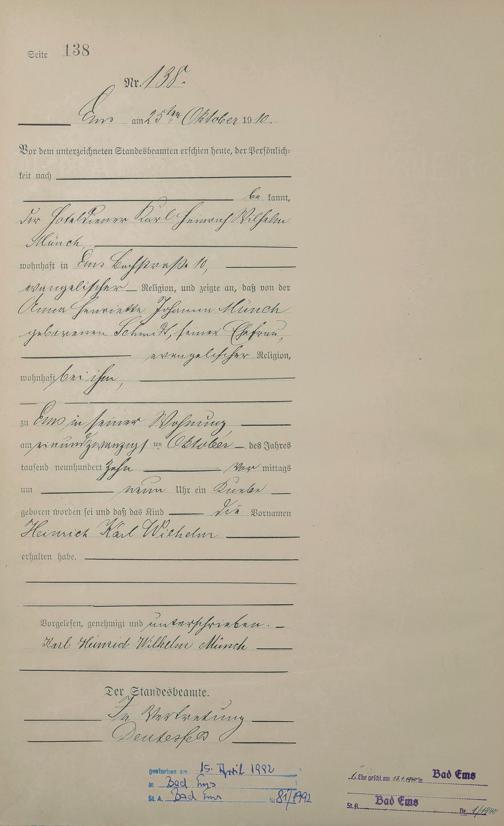 Seite 138
Nr. 138.
Ems am 25ten Oktober 1910.
Vor dem unterzeichneten Standesbeamten erschien heute, der Persönlich-
keit nach
be kannt,
der Hoteldiener Karl Heinrich Wilhelm
Münch
wohnhaft in Ems Bachstraße 10,
evangelischer Religion, und zeigte an, daß von der
Anna Henriette Johanna Münch
geborenen Schmidt, seiner Ehefrau,
evangelischer Religion,
wohnhaft bei ihm,
zu Ems, in seiner Wohnung
am einundzwanzigsten Oktober des Jahres
tausend neunhundert zehn Vor mittags
um neun Uhr ein Knabe
geboren worden sei und daß das Kind die Vornamen
Heinrich Karl Wilhelm
erhalten habe.
Vorgelesen, genehmigt und unterschrieben.
Karl Heinrich Wilhelm Münch
Der Standesbeamte.
In Vertretung
gestorben am 15. April 1992
in Bad Ems
St. A. Bad Ems Nr. 81/1992
1. Ehe geschl. am in Bad Ems
St. A. Bad Ems Nr. 1/1940